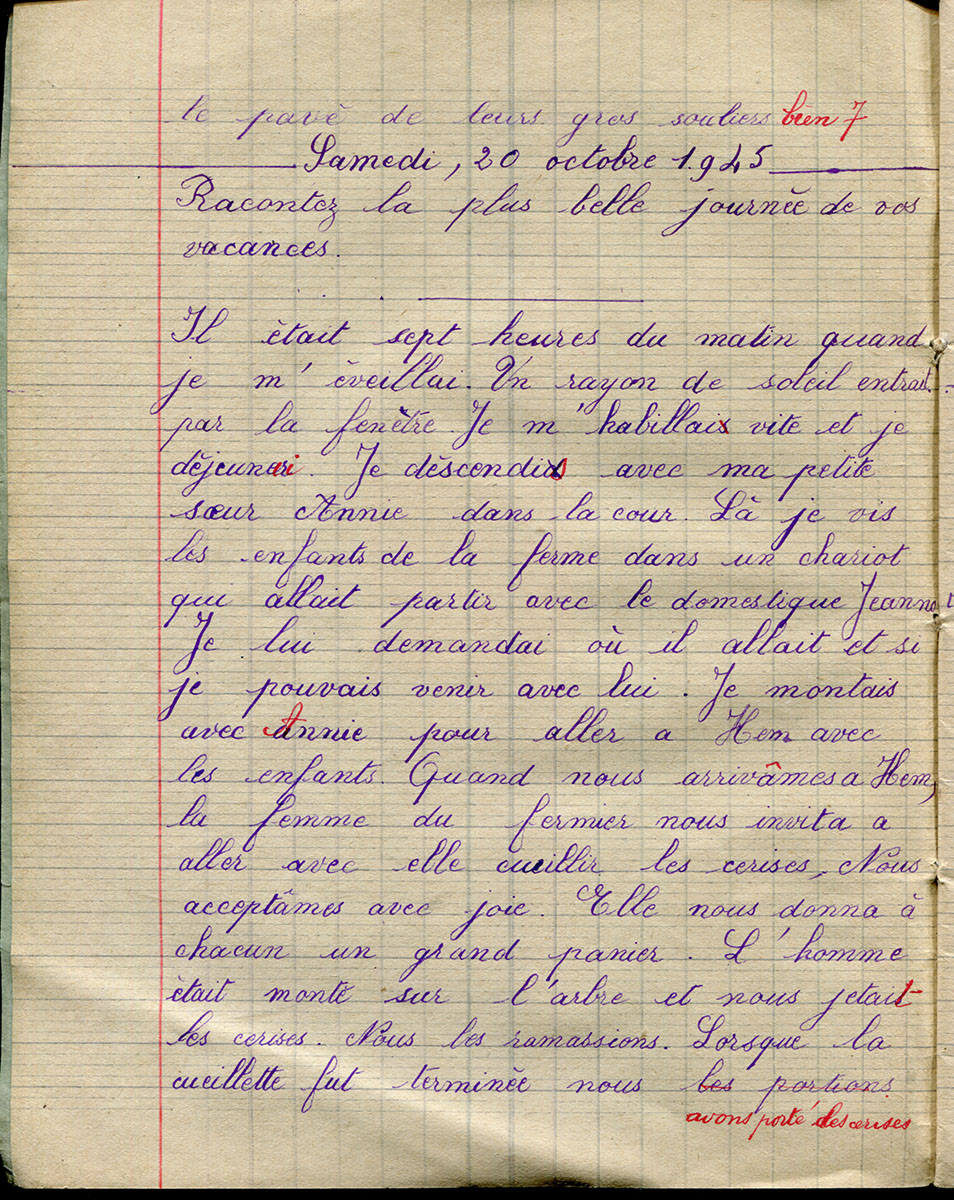 le pavé de leurs gros souliers bien 7
Samedi, 20 octobre 1.945
Racontez la plus belle journée de vos
vacances.
Il était sept heures du matin quand
je m'éveillai. Un rayon de soleil entrait
par la fenêtre. Je m'habillais vite et je
déjeunai. Je déscendis avec ma petite
sœur Annie dans la cour. Là je vis
les enfants de la ferme dans un chariot
qui allait partir avec le domestique Jeannot
Je lui demandai où il allait et si
je pouvais venir avec lui. Je montais
avec Annie pour aller a Hem avec
les enfants. Quand nous arrivâmes a Hem,
la femme du fermier nous invita a
aller avec elle cueillir les cerises, Nous
acceptâmes avec joie. Elle nous donna à
chacun un grand panier. L'homme
était monté sur l'arbre et nous jetait
les cerises. Nous les ramassions. Lorsque la
cueillette fut terminée nous les portions
avons porté les cerises